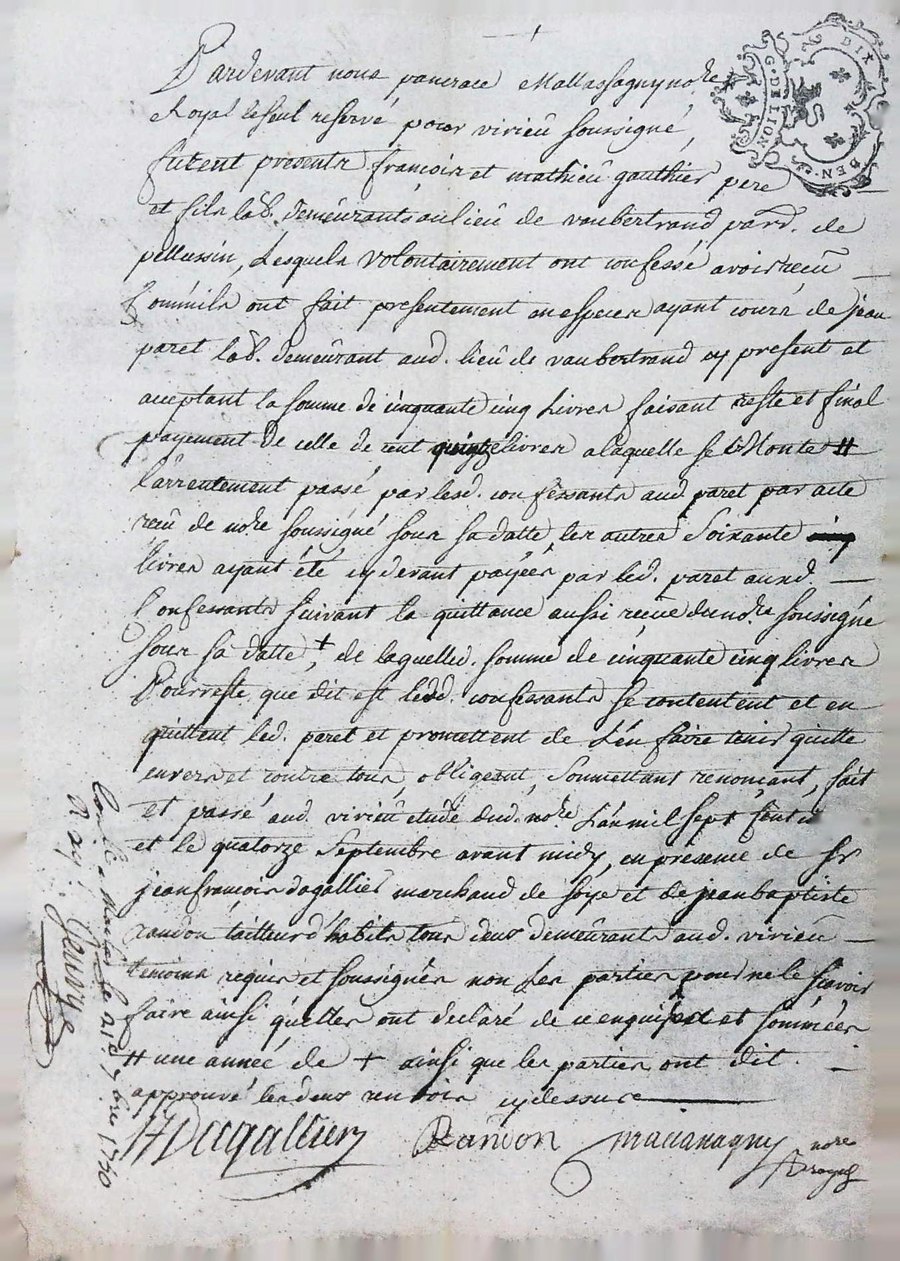 Pardevant nous pancrace Mallassagny nore
Royal le seul reservé pour virieu soussigné,
furent presents françois et mathieu gauthier pere
et fils lab. demeurants au lieu de vaubertrand parr. de
pellussin, Lesquels volontairement ont confessé avoir reçu
Comm'ils ont fait presentement en especes ayant cours de jean
paret lab. demeurant aud. lieu de vaubertrand cy present et
acceptant la somme de cinquante cinq Livres faisant reste et final
payement de celle de cent quinze livres a laquelle se Monte #
l'arrentement passé par lesd. confessants aud paret par acte
reçu de nore soussigné sous sa datte les autres Soixante
livres ayant été cy devant payées par led. paret auxd.
Confessants suivant la quittance aussi reçue dud nore soussigné
sous sa datte +, de laquelled. somme de cinquante cinq livres
Pour reste que dit est lesd. confessants se contentent et en
quittent led. paret et promettent de L'en faire tenir quitte
envers et contre tous, obligeant, soumettant renonçant, fait
et passé aud virieu etude dud. nore L'an mil sept cents
et le quatorze Septembre avant midy, en presence de sr
jean françois dagallier marchand de soye et de jean baptiste
randon tailleur d'habits tous deux demeurants aud. virieu
temoins requis et soussignés non Les parties pour ne le sçavoir
faire ainsi qu'elles ont declaré de ce enquises et sommées
# une année de + ainsi que les parties ont dit
approuvé les deux renvois cy dessus
Dagallier Randon Mallassagny nore
royal
Con.lé a le 21e 7bre 1750
G. DE LION
DIX DEN.